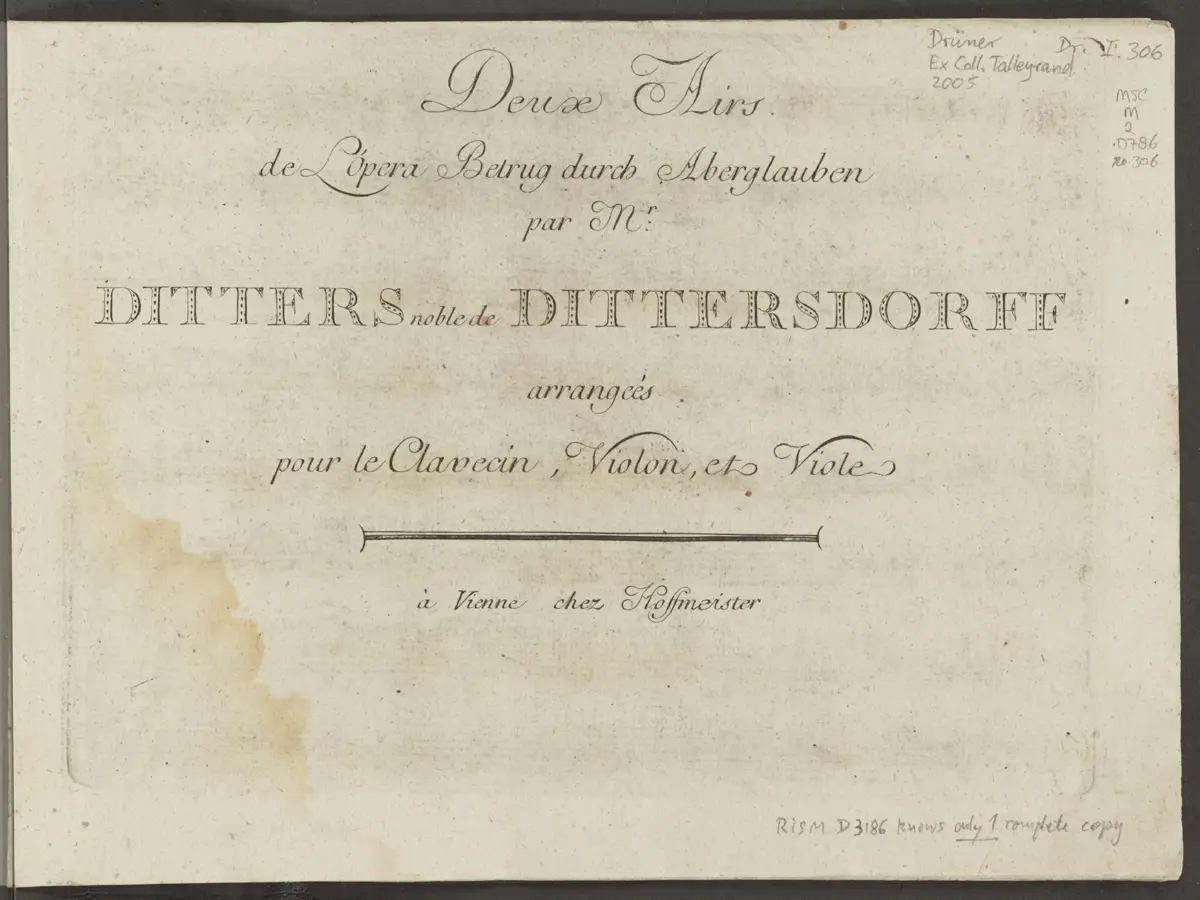 Drüner Dr. I. 306
Ex Coll. Talleyrand
2005
MSC
M
2
.D786
no. 306
Deux Airs.
de L'öpera Betrug durch Aberglauben
par Mr.
DITTERS noble de DITTERSDORFF
arrangeés
pour le Clavecin, Violon, et Viole
à Vienne chez Hoffmeister
RISM D 3186 knows only 1 complete copy